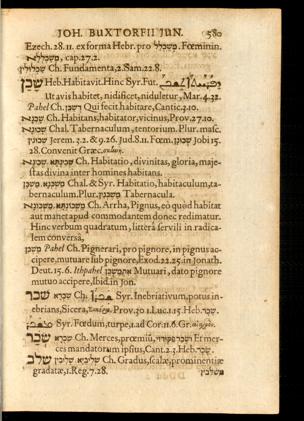 JOH. BUXTORFII JUN. 580
Ezech. 28.11. ex forma Hebr. pro משכלל. Fœminin.
cap. 27.2.
Ch. Fundamenta, 2. Sam. 22.8.
שכן Heb. Habitavit. Hinc Syr. Fut.
Ut avis habitet, nidificet, niduletur, Mar. 4.32.
Pahel Ch. Qui fecit habitare, Cantic. 3.10.
Ch. Habitans, habitator, vicinus, Prov. 27.10.
Chal. Tabernaculum, tentorium. Plur. masc.
Jerem. 3.2. & 9.26. Jud. 8.11. Fœm. Jobi 15.
28. Convenit Græc. σκηνή.
שכינתא Ch. Habitatio, divinitas, gloria, maje-
stas divina inter homines habitans.
Chal. & Syr. Habitatio, habitaculum, ta-
bernaculum. Plur. Tabernacula.
Ch. Arrha, Pignus, eò quòd habitat
aut manet apud commodantem donec redimatur.
Hinc verbum quadratum, litterâ servili in radica-
lem conversâ,
משכן Pahel Ch. Pignerari, pro pignore, in pignus ac-
cipere, mutuare sub pignore, Exod. 22.25. in Jonath.
Deut. 15.6. Ithpahel Mutuari, dato pignore
mutuo accipere, Ibid. in Jon.
שכר Syr. Inebriativum, potus in-
ebrians, Sicera, Prov. 20.1. Luc. 1.15. Heb. שכר.
Syr. Fœdum, turpe, 1. ad Cor. 11.6. Gr.
שכר Ch. Merces, præmiũ, Et mer-
ces mandatorum ipsius, Cant. 2.3. Heb. שכר.
שלב Ch. Gradus, scalæ, prominentiæ
gradatæ, 1. Reg. 7.28.